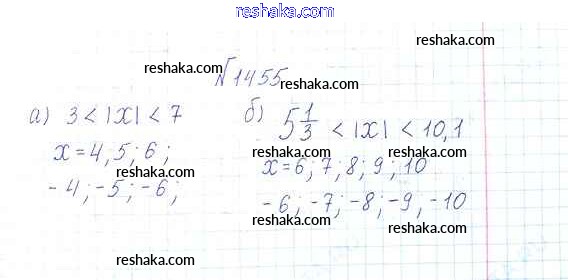 reshaka.com
№1455
reshaka.com
reshaka.com
reshaka.com
а) 3 < |x| < 7
б) 5 1/3 < |x| < 10,1
reshaka.com
reshaka.com
x = 4, 5; 6;
x = 6; 7; 8; 9; 10
reshaka.com
reshaka.com
-4; -5; -6;
-6; -7; -8; -9, -10
reshaka.com
reshaka.com
reshaka.com
reshaka.com